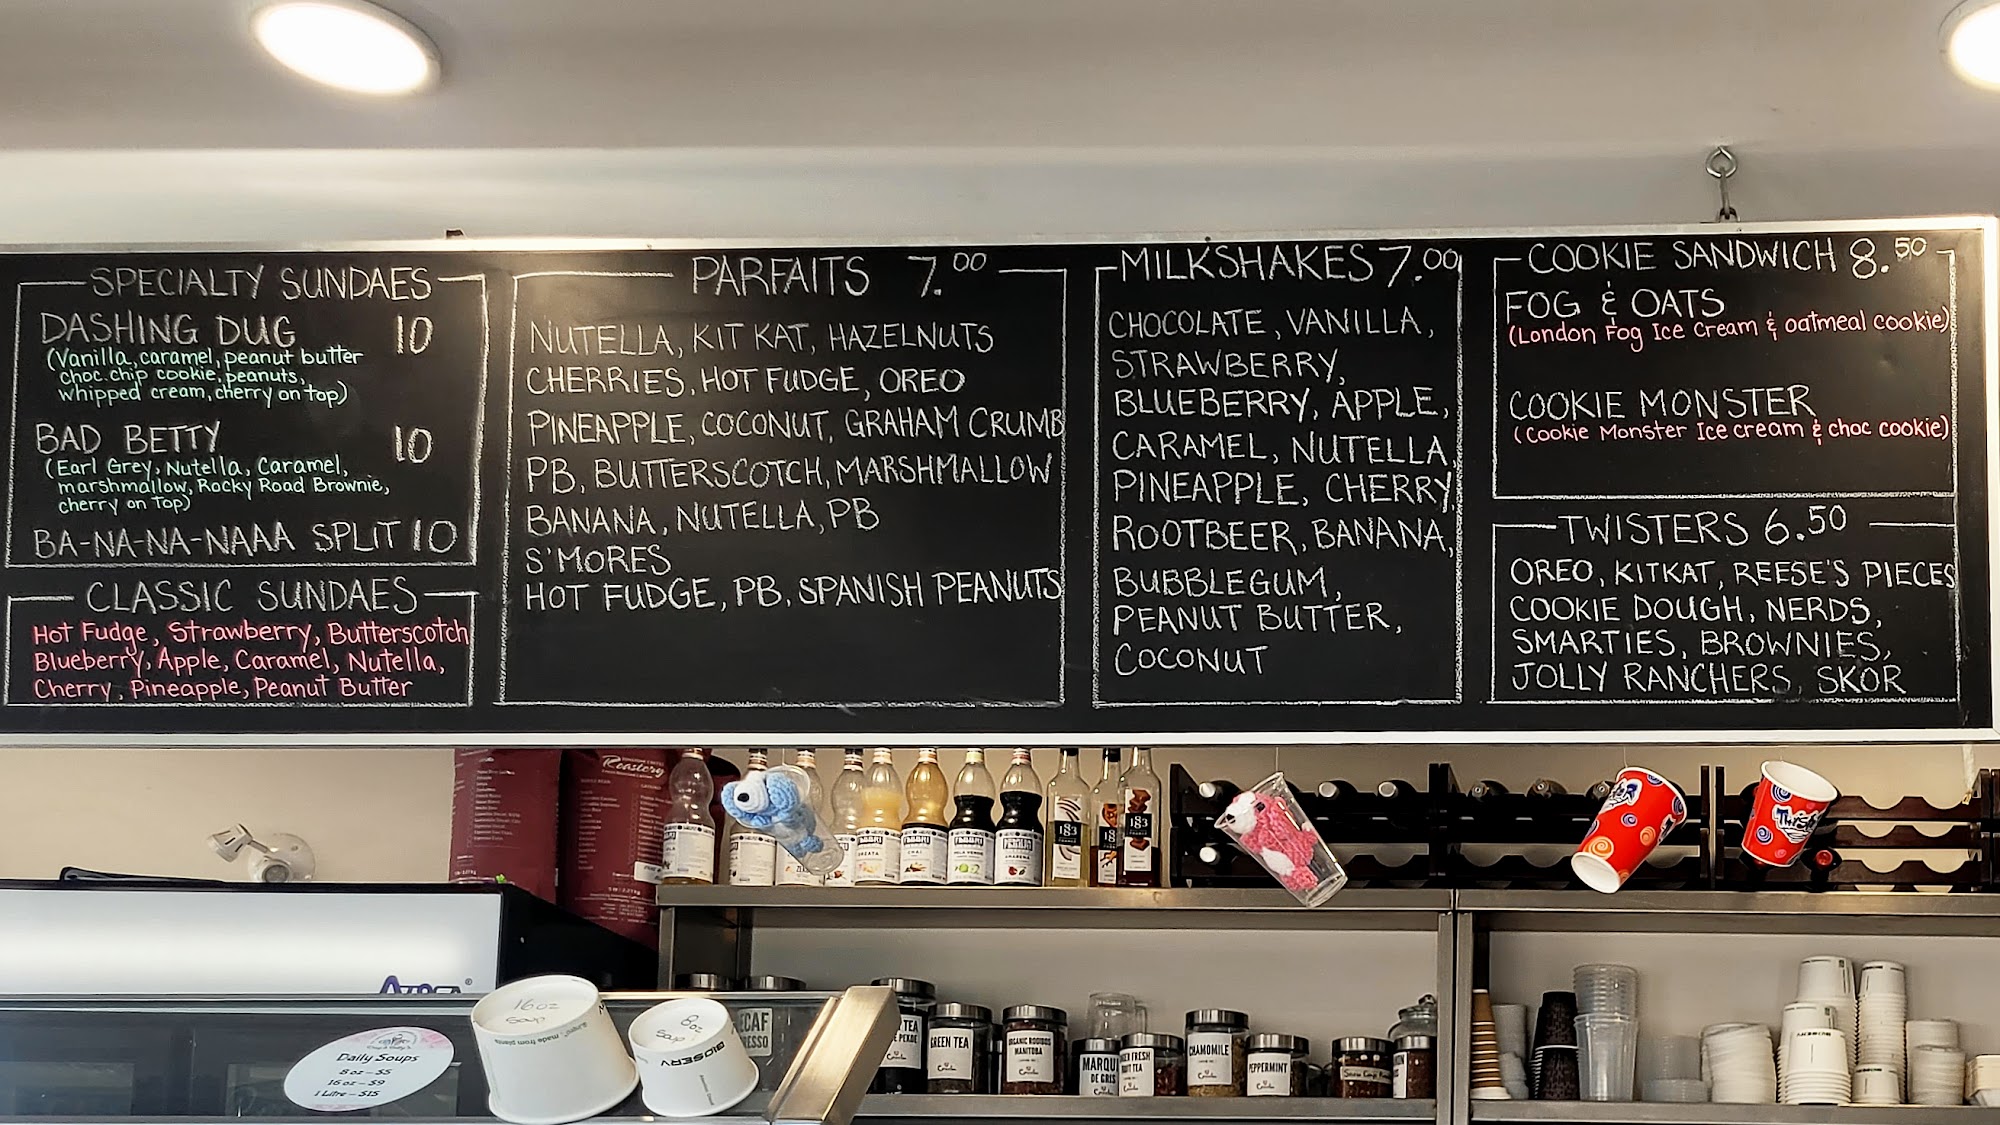 SPECIALTY SUNDAES
DASHING DUG 10
(Vanilla, caramel, peanut butter
choc.chip cookie, peanuts,
whipped cream, cherry on top)
BAD BETTY 10
(Earl Grey, Nutella, Caramel,
marshmallow, Rocky Road Brownie,
cherry on Top)
BA-NA-NA-NAAA SPLIT 10
CLASSIC SUNDAES
Hot Fudge, Strawberry, Butterscotch
Blueberry, Apple, Caramel, Nutella,
Cherry, Pineapple, Peanut Butter
PARFAITS 7.00
NUTELLA, KIT KAT, HAZELNUTS
CHERRIES, HOT FUDGE, OREO
PINEAPPLE, COCONUT, GRAHAM CRUMB
PB, BUTTERSCOTCH, MARSHMALLOW
BANANA, NUTELLA, PB
S'MORES
HOT FUDGE, PB, SPANISH PEANUTS
MILKSHAKES 7.00
CHOCOLATE, VANILLA,
STRAWBERRY,
BLUEBERRY, APPLE,
CARAMEL, NUTELLA,
PINEAPPLE, CHERRY,
ROOTBEER, BANANA,
BUBBLEGUM,
PEANUT BUTTER,
COCONUT
COOKIE SANDWICH 8.50
FOG & OATS
(London Fog Ice Cream & oatmeal cookie)
COOKIE MONSTER
(Cookie Monster Ice cream & choc cookie)
TWISTERS 6.50
OREO, KITKAT, REESE'S PIECES
COOKIE DOUGH, NERDS,
SMARTIES, BROWNIES,
JOLLY RANCHERS, SKOR
Roastery
FABBRI
ORZATA
FABBRI
CHAI
FABBRI
MELA VERDE
FABBRI
AMARENA
183
183
183
Twister
Daily Soups
8 oz – $5
16 oz – $9
1 Litre – $15
16oz
Soup
made from plants
8oz
Soup
BIOSERV
DECAF
ESPRESSO
TEA
GREEN TEA
ORGANIC ROOIBOS
MANITOBA
MARQUIS
DE GRIS
FRESH
FRUIT TEA
CHAMOMILE
PEPPERMINT